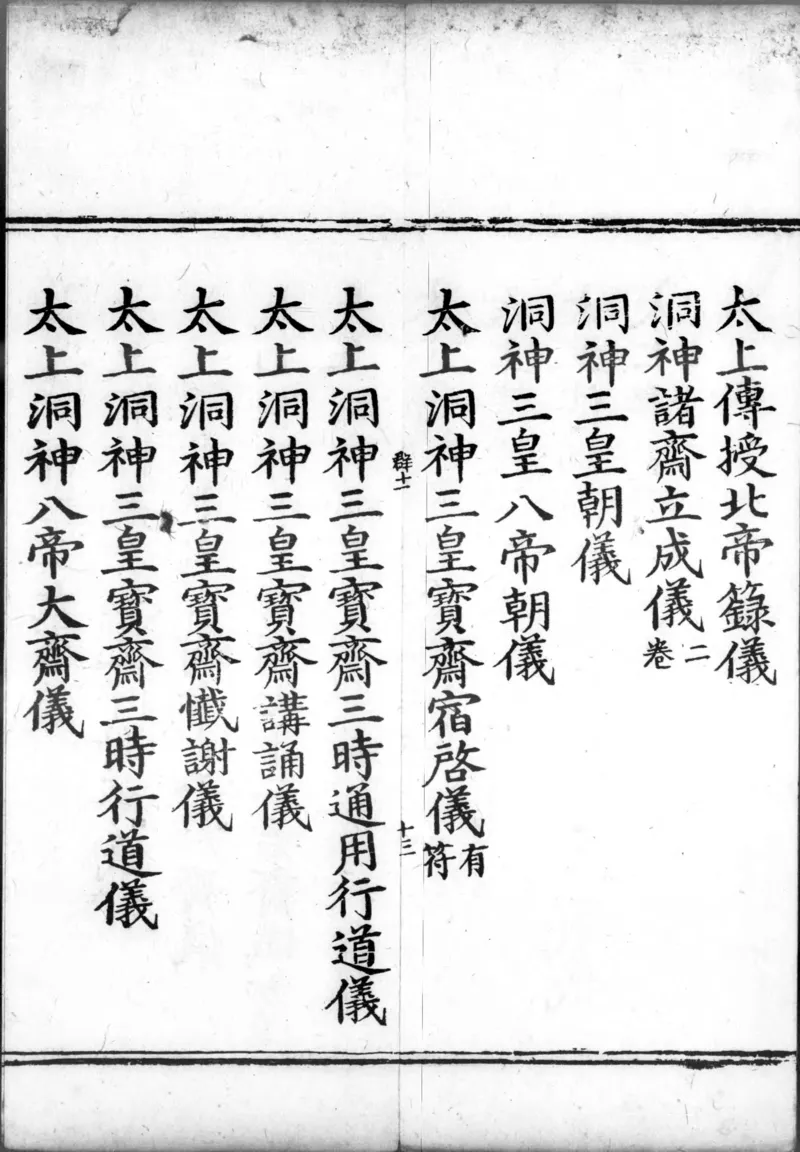 太上傳授北帝籙儀
洞神諸齋立成儀二卷
洞神三皇朝儀
洞神三皇八帝朝儀
太上洞神三皇寶齋宿啓儀有符
十三
太上洞神三皇寶齋三時通用行道儀
太上洞神三皇寶齋講誦儀
太上洞神三皇寶齋懺謝儀
太上洞神三皇寶齋三時行道儀
太上洞神八帝大齋儀